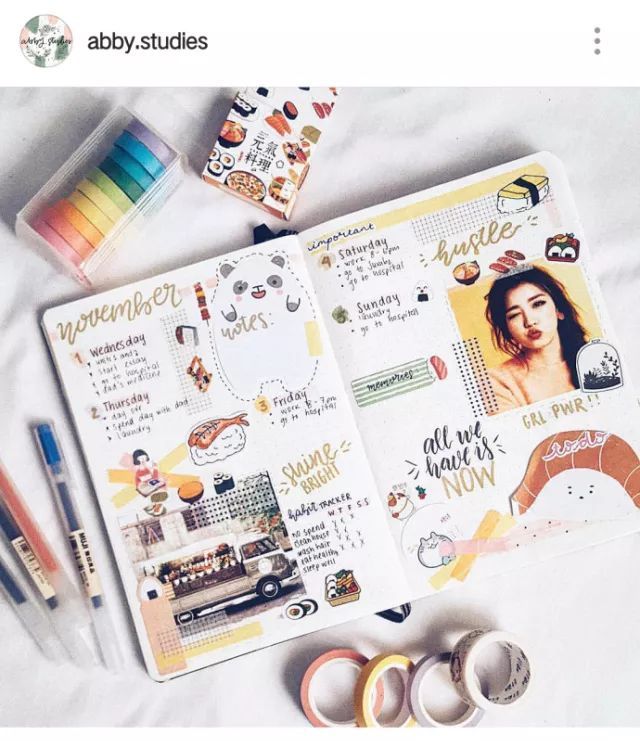 abby.studies
元氣
料理
november
1. Wednesday
start essay
go to hospital
dad's medicine
2. Thursday
day off
spend day with dad
laundry
notes.
3 Friday
work 8-7pm
go to hospital
SHINE
BRIGHT
habit TRACKER
W T F S S
no spend
clean house
wash hair
eat healthy
sleep well
important
4 Saturday
go to hospital
Sunday
laundry
go to hospital
memories
hustle
GRL PWR!!
all we
have is
NOW
to do